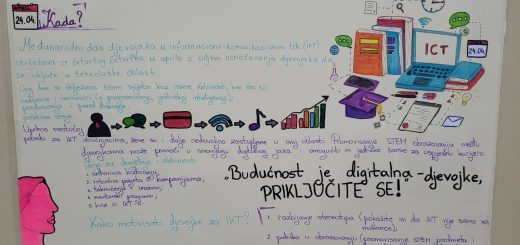 APRIL
24.04.
Kada?
24.04.
Međunarodni dan djevojaka u informaciono-komunikacionim teh. (ICT)
obilježava se četvrtog četvrtka u aprilu s ciljem osnaživanja djevojaka da
se uključe u tehnološke oblasti.
Ovaj dan se obilježava širom svijeta kroz razne aktivnosti, kao što su
radionice i seminari (o programiranju, vještačkoj inteligenciji),
predavanja i panel diskusije,
praktične
Uprkos rastućoj
potrebi za IKT stručnjacima, žene su i dalje nedovoljno zastupljene u ovoj oblasti. Promovisanje STEM obrazovanja među
djevojkama može pomoći u smanjenju digitalnog jaza i omogućiti im jednake šanse za uspješnu karijeru.
Ideje za događaje i aktivnosti:
1. radionica kodiranja,
2. virtualna posjeta IT kompanijama,
3. takmičenja i izazovi,
4. mentorski programi,
5. kviz o IKT-u
ICT
„Budućnost je digitalna-djevojke,
PRIKLJUČITE SE!"
Kako motivisati djevojke za IKT?
1. razbijanje stereotipa (pokažite im da IKT nije samo za
muškarce),
2. podrška u obrazovanju (promovisanje STEM predmeta i